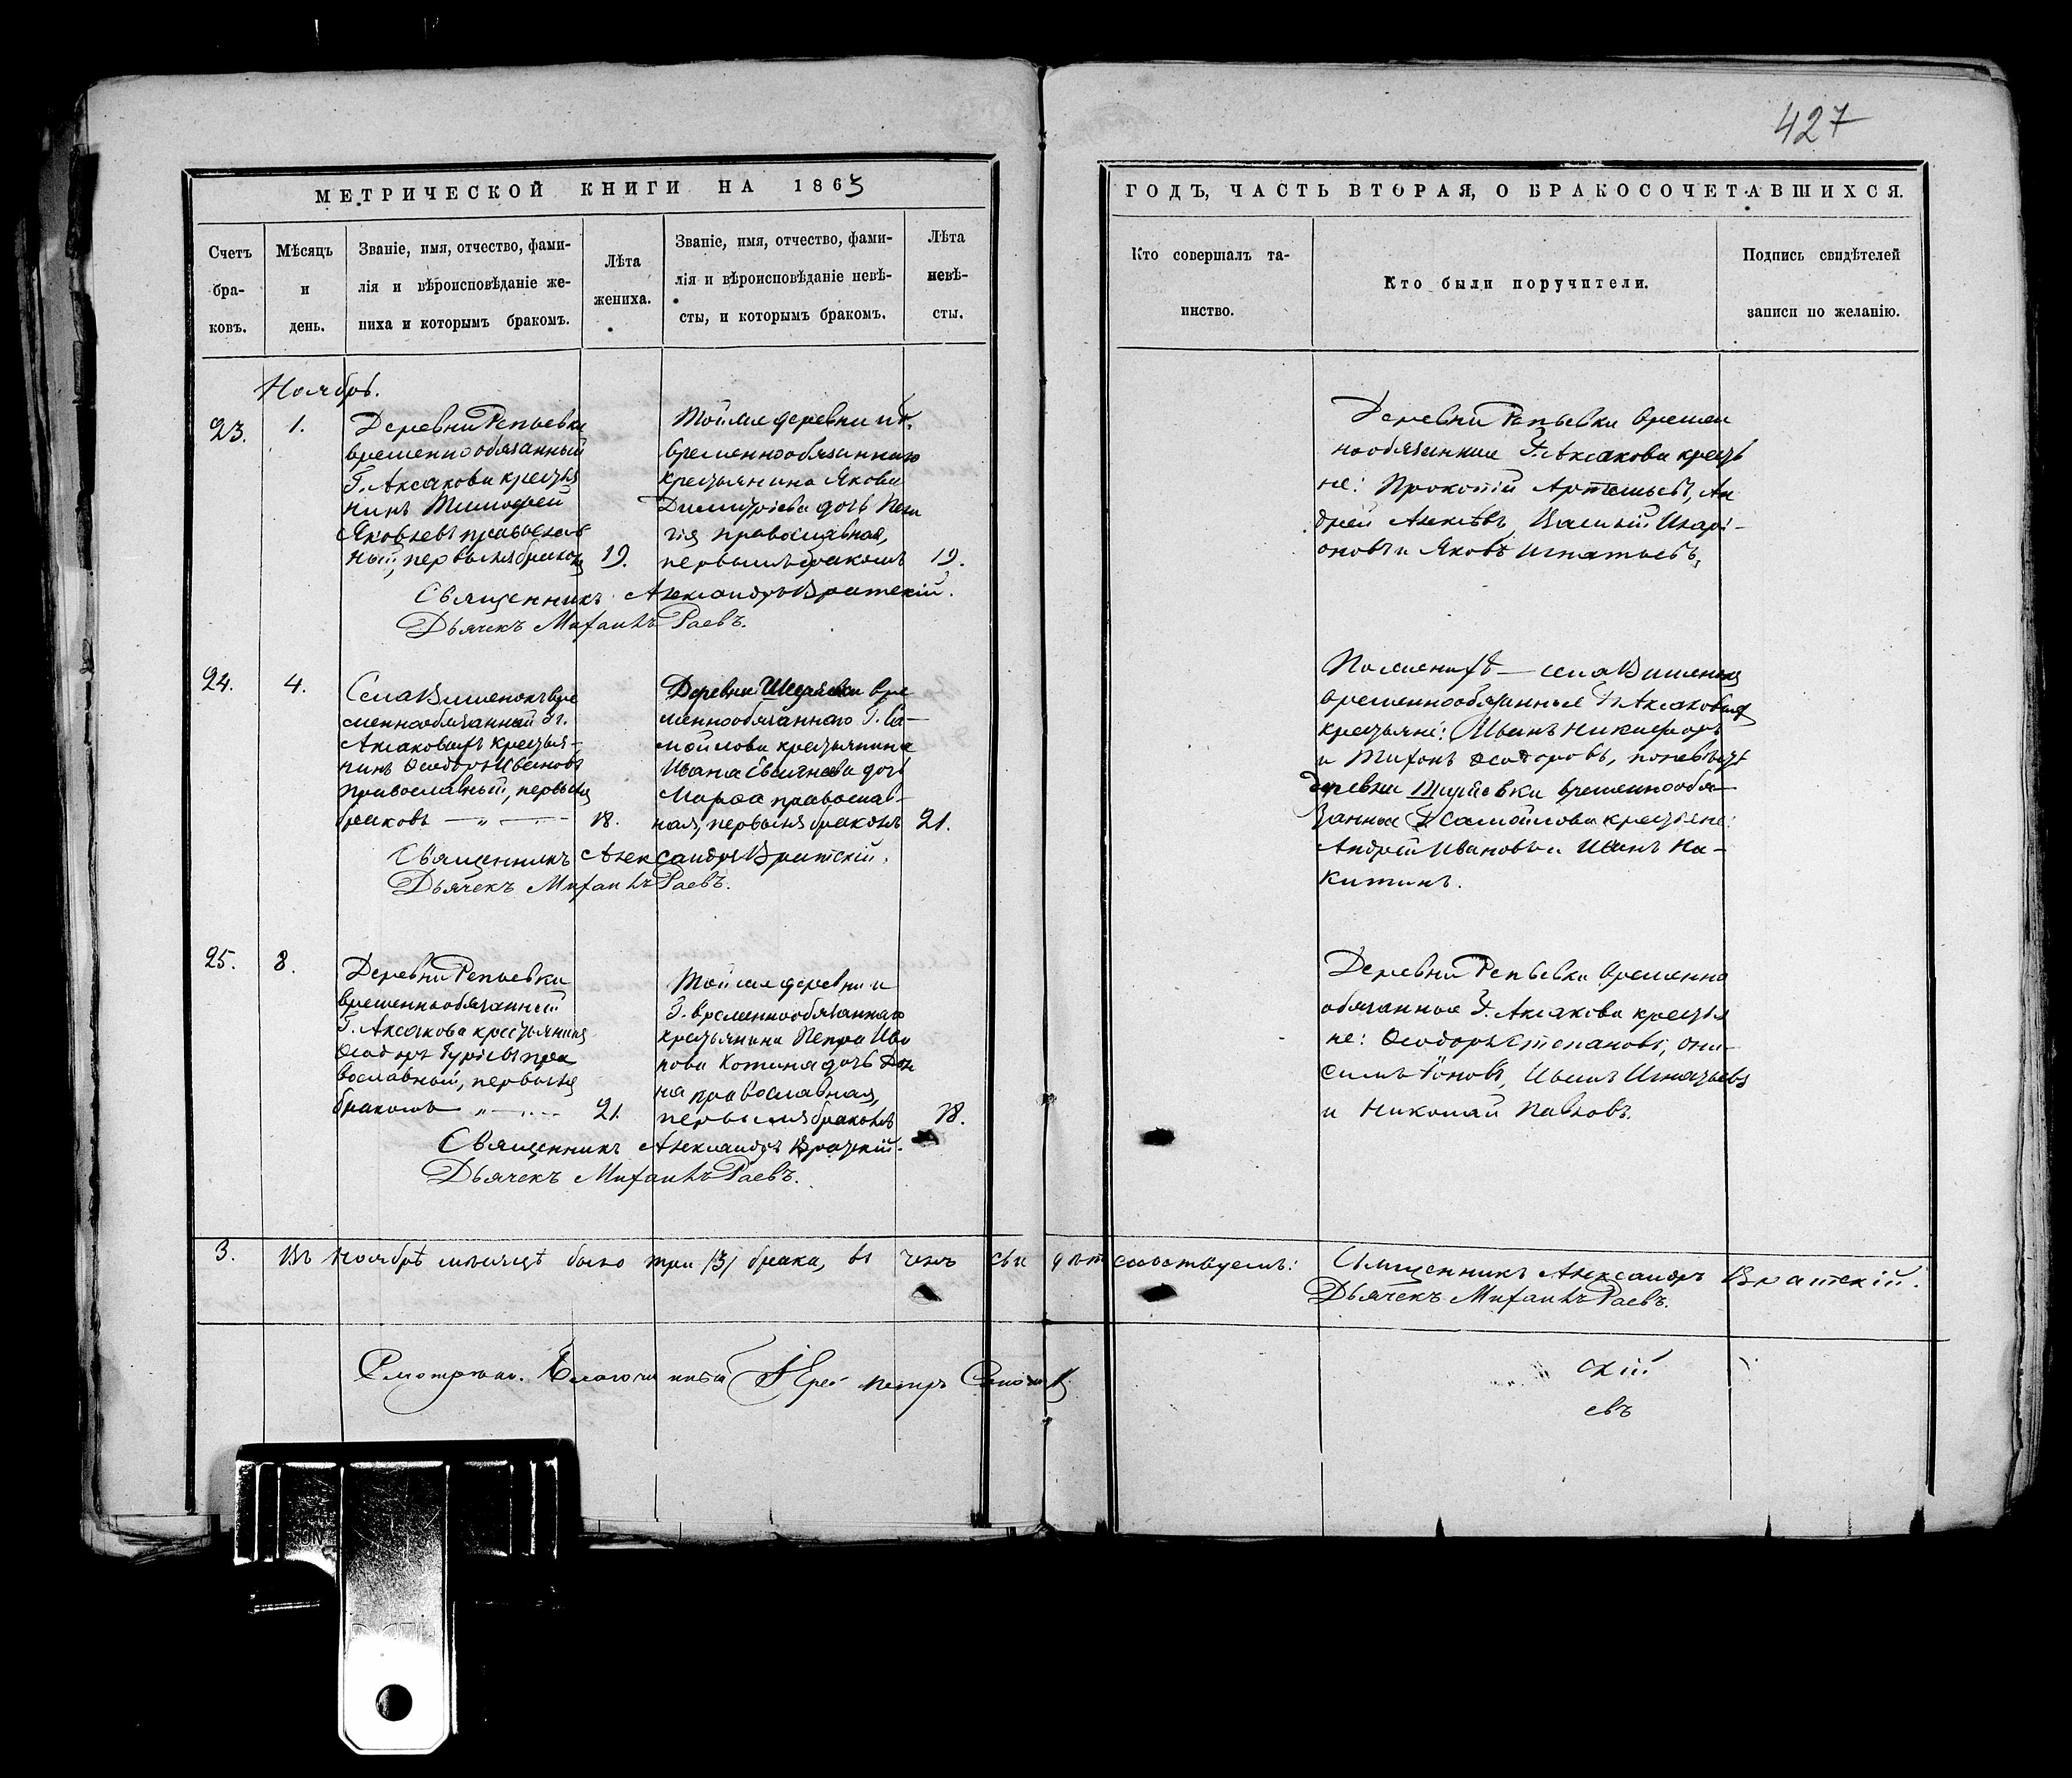 427
МЕТРИЧЕСКОЙ КНИГИ НА 1863
ГОДЪ, ЧАСТЬ ВТОРАЯ, О БРАКОСОЧЕТАВШИХСЯ.
Счетъ
бра-
ковъ.
Мѣсяцъ
и
день.
Званіе, имя, отчество, фами-
лія и вѣроисповѣданіе же-
ниха и которымъ бракомъ.
Лѣта
жениха.
Званіе, имя, отчество, фами-
лія и вѣроисповѣданіе невѣ-
сты, и которымъ бракомъ.
Лѣта
невѣ-
сты.
Кто совершалъ та-
инство.
Кто были поручители.
Подпись свидѣтелей
записи по желанію.
Ноябрь.
23.
1.
Деревни Репьевки
временнообязанный
Г. Аксакова кресть
нинъ Тимофей
Яковлевъ православ
ный, первымъ бракомъ
19.
Тойже деревни и Г.
временнообязаннаго
крестьянина Якова
Димитріева дочь Пела
гія православная,
первымъ бракомъ
19.
Священникъ Александръ Вратскій.
Дьячекъ Михаилъ Раевъ.
Деревни Репьевки времен
нообязанные Г. Аксакова кресть
не: Прокопій Артемьевъ, Ан
дрей Алексѣевъ, Василій Иларі-
оновъ и Яковъ Игнатьевъ,
24.
4.
Села Вишенокъ вре
меннообязанный Гг.
Аксаковыхъ крестья-
нинъ Ѳеодоръ Ивановъ
православный, первымъ
бракомъ — „ —
18.
Деревни вре
меннообязаннаго Г. Са-
мойлова крестьянина
Ивана дочь
Марѳа православ-
ная, первымъ бракомъ
21.
Священникъ Александръ Вратскій.
Дьячекъ Михаилъ Раевъ.
По женихѣ — села Вишенокъ
временнообязанные Гг. Аксаковыхъ
крестьяне: Иванъ Никифоровъ
и Тихонъ Ѳеодоровъ, по невѣстѣ
деревни временнообя-
занные Г. Самойлова крестьяне:
Андрей Ивановъ и Иванъ Ни-
китинъ.
25.
8.
Деревни Репьевки
временнообязанный
Г. Аксакова крестьянинъ
Ѳеодоръ Гурьевъ пра
вославный, первымъ
бракомъ „ —
21.
Тойже деревни и
Г. временнообязаннаго
крестьянина Петра Ива
нова Котина дочь
на православная,
первымъ бракомъ
18.
Священникъ Александръ Вратскій.
Дьячекъ Михаилъ Раевъ.
Деревни Репьевки временно
обязанные Г. Аксакова крестья
не: Ѳеодоръ Степановъ, Они-
симъ Іоновъ, Иванъ Игнатьевъ
и Николай Павловъ.
3.
Въ Ноябрѣ мѣсяцѣ было три /3/ брака, въ чемъ свидѣтельствуемъ: Священникъ Александръ Вратскій.
Дьячекъ Михаилъ Раевъ.
Смотрѣлъ. Благочинный Іерей Петръ
скій
евъ